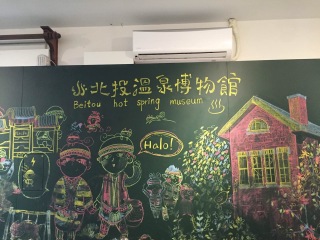 北投溫泉博物館
Beitou hot spring museum
Halo!